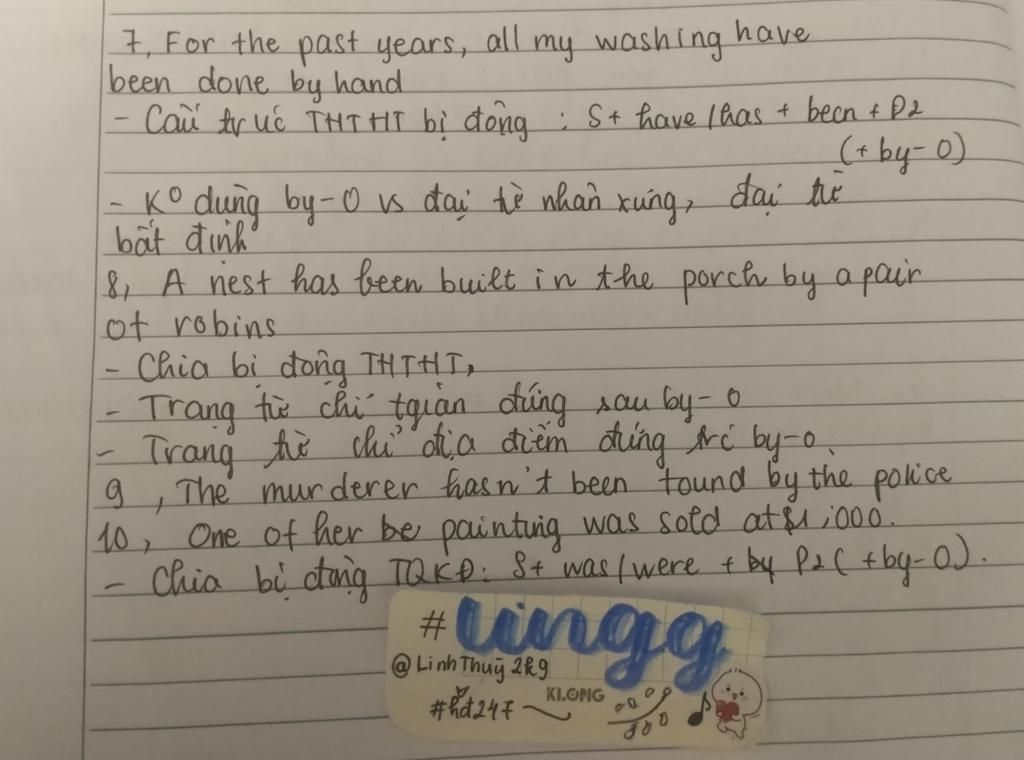 7, For the past years, all my washing have
been done by hand
- Cấu trúc THTHT bị động : S+ have/has + been + P2
(+ by-O)
- Kº dùng by-O vs đại từ nhân xưng, đại từ
bất định
8, A nest has been built in the porch by a pair
of robins
- Chia bị động THTHT,
- Trạng từ chỉ tgian đứng sau by-O
- Trạng từ chỉ địa điểm đứng trc by-O
9, The murderer hasn't been found by the police
10, One of her be painting was sold at $1,000.
- Chia bị động TQKĐ: S+ was/were + by P2 ( +by-O).
#lingg
@LinhThuỳ2k9
KLONG
#hđ247